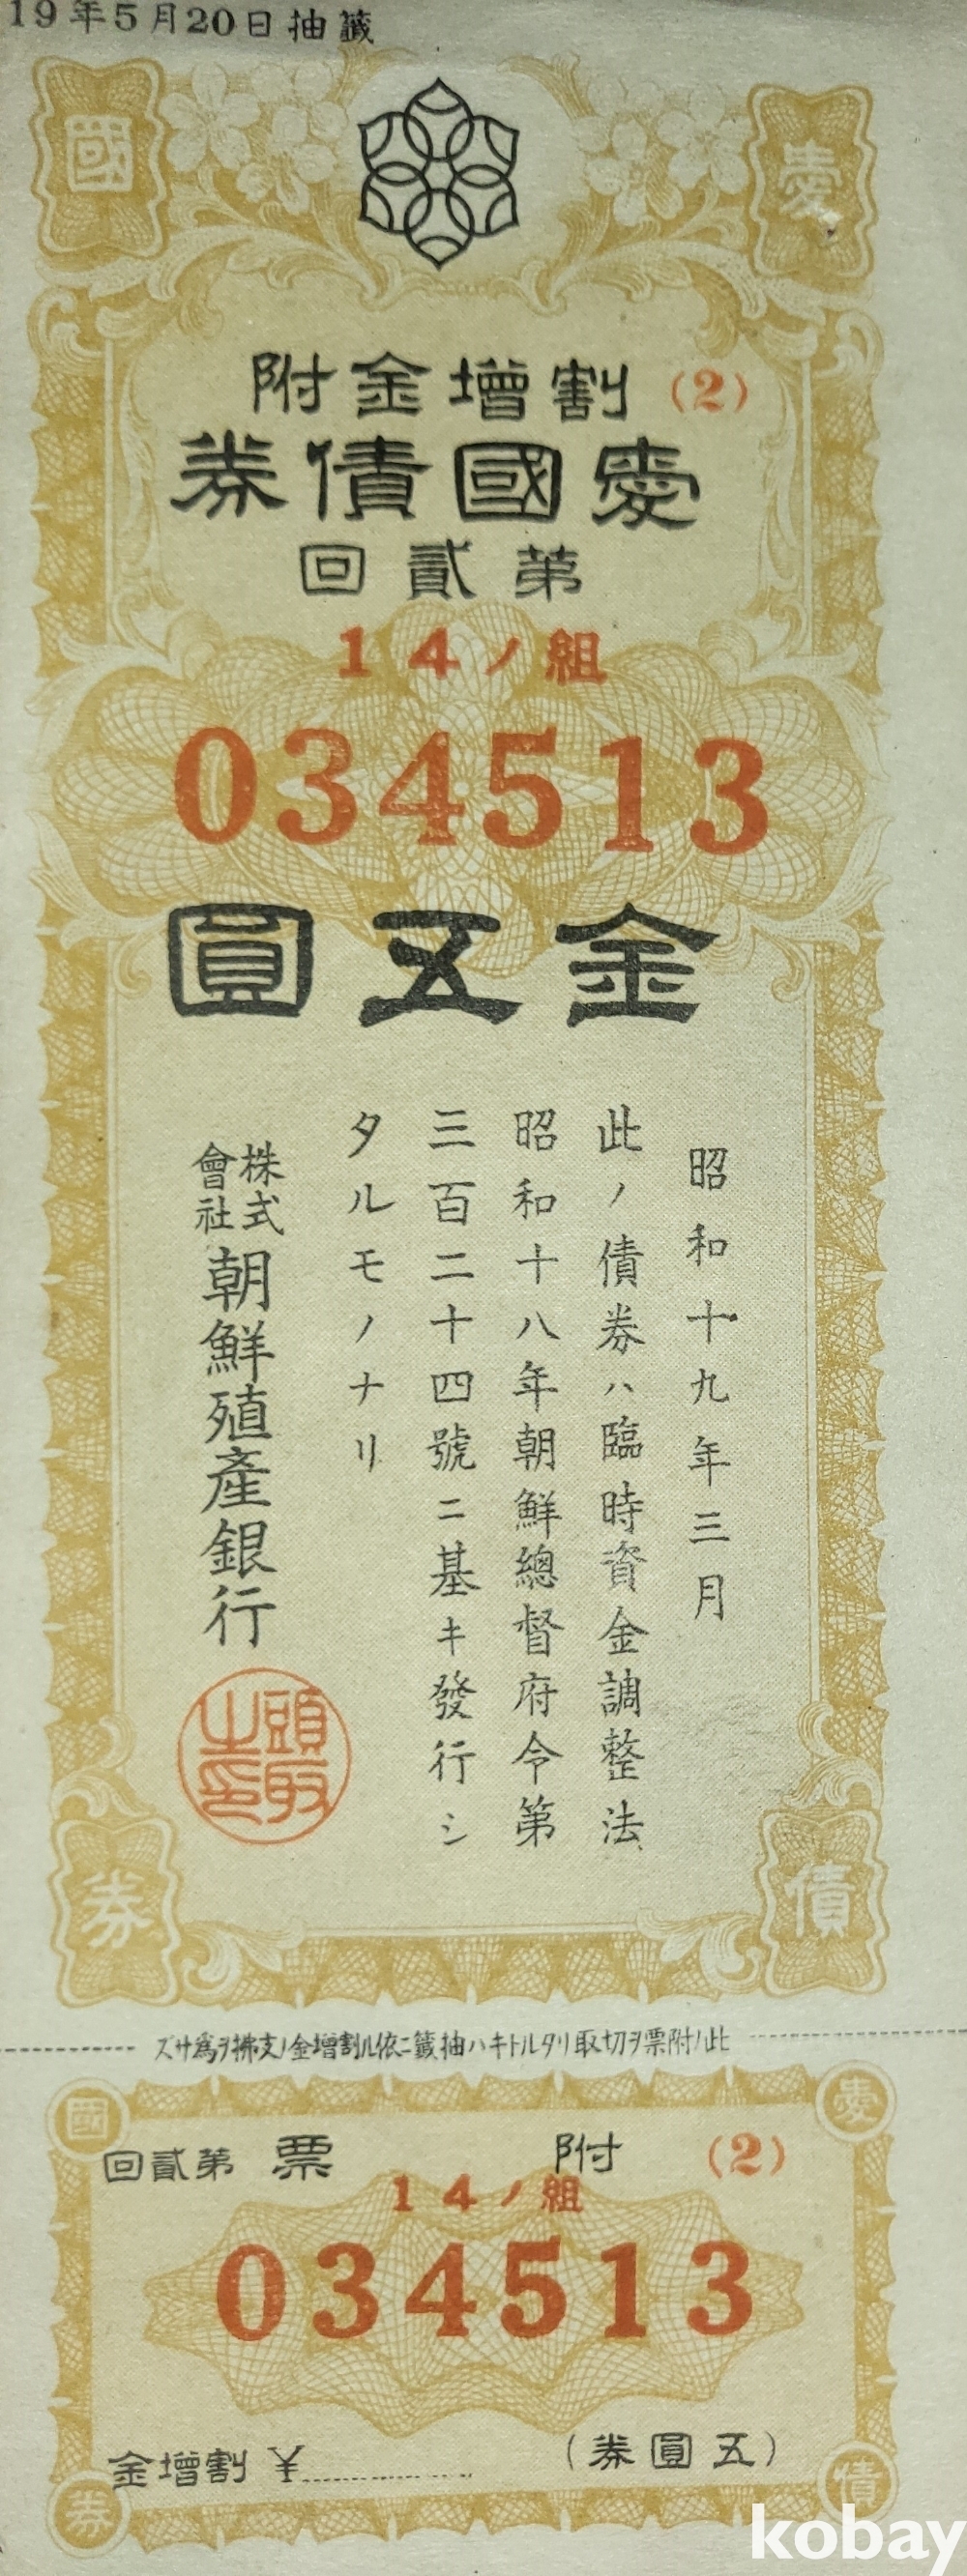 19年5月20日抽籤
國 愛
附金增割 (2)
券債國愛
回貳第
14ノ組
034513
圓五金
昭和十九年三月
此ノ債券ハ臨時資金調整法
昭和十八年朝鮮總督府令第
三百二十四號ニ基キ發行シ
タルモノナリ
株式會社朝鮮殖產銀行
頭取之印
券 債
ズサ爲ヲ拂支ノ金增割ル依ニ籤抽ハキトルタリ取切ヲ票附ノ此
國 愛
回貳第 票 附 (2)
14ノ組
034513
金增割 ¥ (券圓五)
券 債
kobay